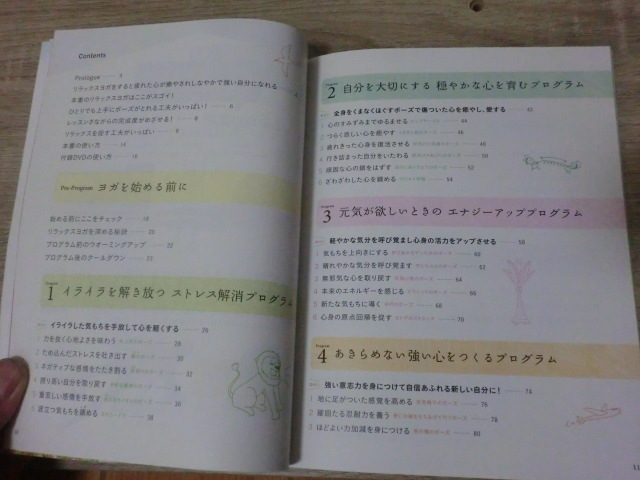 Contents
Prologue 3
リラックスヨガをすると疲れた心が癒やされしなやかで強い自分になれる 4
本書のリラックスヨガはここがスゴイ!
ひとりでも上手にポーズがとれる工夫がいっぱい! 6
レッスンさながらの完成度がめざせる! 8
リラックスを促す工夫がいっぱい
本書の使い方 14
付録DVDの使い方 16
Pre-Program ヨガを始める前に
始める前にここをチェック 18
リラックスヨガを深める秘訣 20
プログラム前のウオーミングアップ 22
プログラム後のクールダウン 23
Program 1 イライラを解き放つ ストレス解消プログラム
イライラした気持ちを手放して心を軽くする 26
1 力を抜く心地よさを味わう 28
2 ため込んだストレスを吐き出す 30
3 ネガティブな感情をたたき割る 32
4 誇り高い自分を取り戻す 34
5 重苦しい感情を手放す 36
6 波立つ気持ちを鎮める 38
Program 2 自分を大切にする 穏やかな心を育むプログラム
全身をくまなくほぐすポーズで傷ついた心を癒やし、愛する 42
1 心のすみずみまでゆるませる 44
2 つらく悲しい心を癒やす 46
3 疲れきった心身を復活させる 48
4 行き詰まった自分をいたわる 50
5 頑固な心の鎖をはずす 52
6 ざわざわした心を鎮める 54
Program 3 元気が欲しいときの エナジーアッププログラム
軽やかな気分を呼び覚まし心身の活力をアップさせる 58
1 気もちを上向きにする 60
2 晴れやかな気分を呼び覚ます 62
3 無邪気な心を取り戻す 64
4 本来のエネルギーを感じる 66
5 新たな気もちに導く 68
6 心身の原点回帰を促す 70
Program 4 あきらめない 強い心をつくるプログラム
強い意志力を身につけて自信あふれる新しい自分に! 74
1 地に足がついた感覚を高める 76
2 確固たる忍耐力を養う 78
3 ほどよい力加減を身につける 80